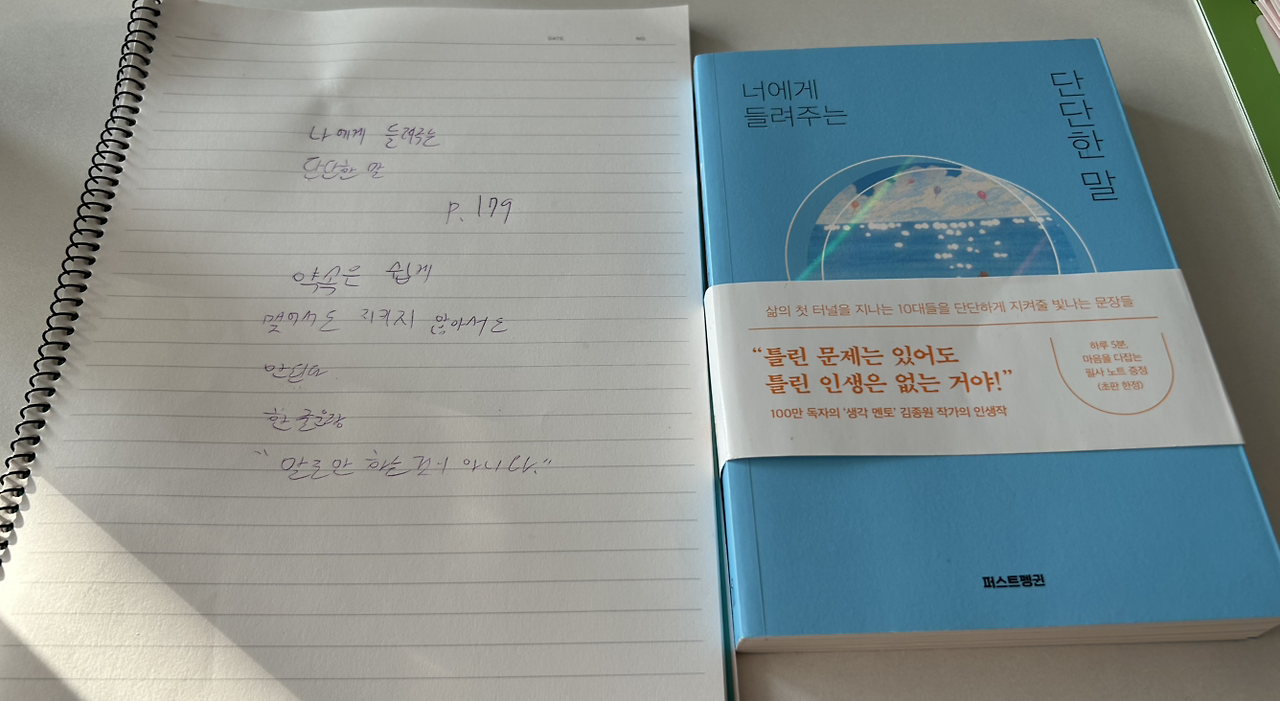 DATE
NO.
나에게 들려주는
단단한 말
P. 179
약속은 쉽게
맺어서도 지키지 않아서도
안된다.
한 줄요약
"말로만 하는 것이 아니다."
너에게
들려주는
단단한 말
삶의 첫 터널을 지나는 10대들을 단단하게 지켜줄 빛나는 문장들
“틀린 문제는 있어도
틀린 인생은 없는 거야!”
100만 독자의 '생각 멘토' 김종원 작가의 인생작
하루 5분,
마음을 다잡는
필사 노트 증정
(초판 한정)
퍼스트펭귄